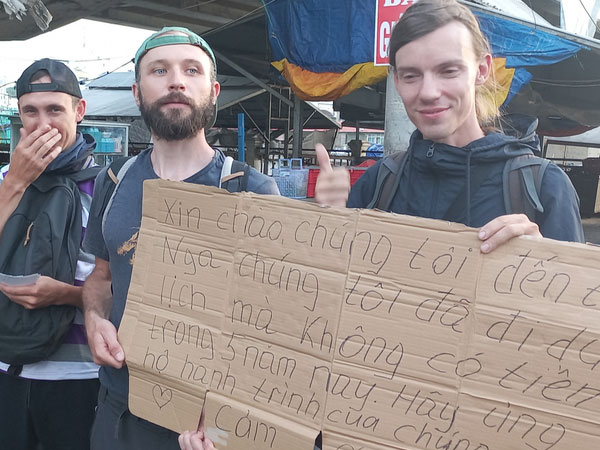 Xin chao, chúng tôi đến t
Nga, chúng tôi đã đi du
lich mà không có tiềm
trong 5 năm nay. Hãy ủng
hộ hành trình của chúng
Cảm